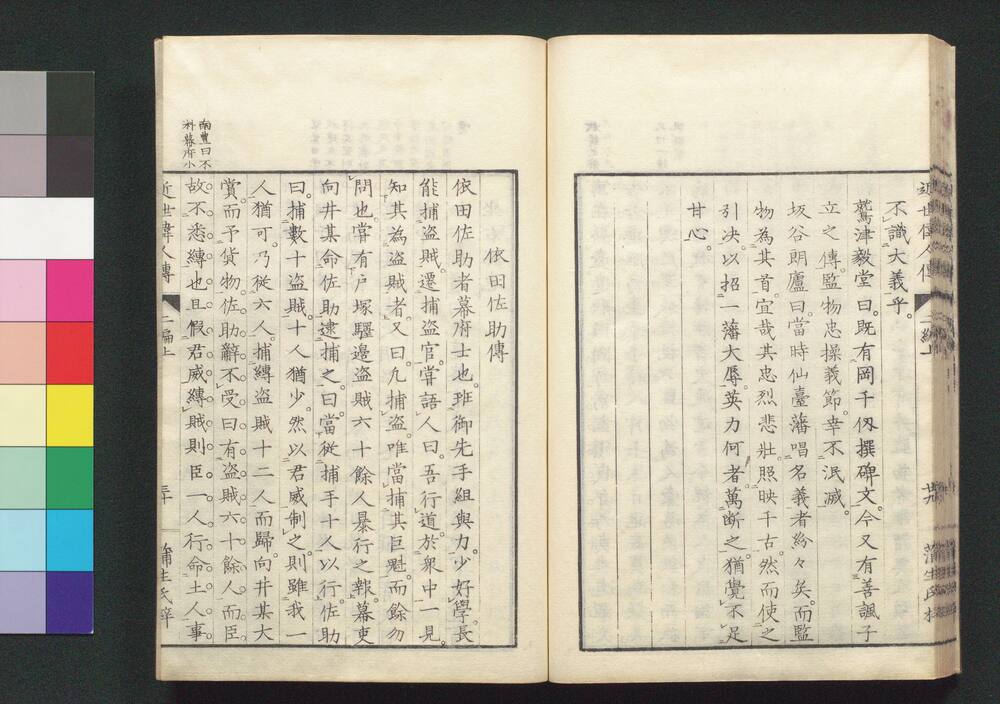 不識大義乎。
鷲津毅堂曰。既有岡千仭撰碑文。今又有善諷子
立之傳。監物忠操義節。幸不泯滅。
坂谷朗廬曰。當時仙臺藩唱名義者紛々矣。而監
物為其首。宜哉其忠烈悲壯。照映千古。然而使之
引决。以招一藩大辱。英力何者。萬斷之。猶覺不足
甘心。
依田佐助傳
依田佐助者幕府士也。班御先手組與力。少好學。長
能捕盜賊。遷捕盜官。甞語人曰。吾行道。於衆中一見。
知其為盜賊者。又曰。凢捕盜。唯當捕其巨魁。而餘勿
問也。甞有戸塚驛邊盜賊六十餘人暴行之報。幕吏
向井某命佐助逮捕之。曰。當從捕手十人以行。佐助
曰。捕數十盜賊。十人猶少。然以君威制之。則雖我一
人猶可。乃從六人。捕縛盜賊十二人而歸。向井某大
賞。而予貨物。佐助辭不受曰。有盜賊六十餘人。而臣
故不悉縛也。且假君威縛賊。則臣一人行命土人事
南豊曰不
料幕府小
近世偉人傳
二編上
三十
蒲生氏梓